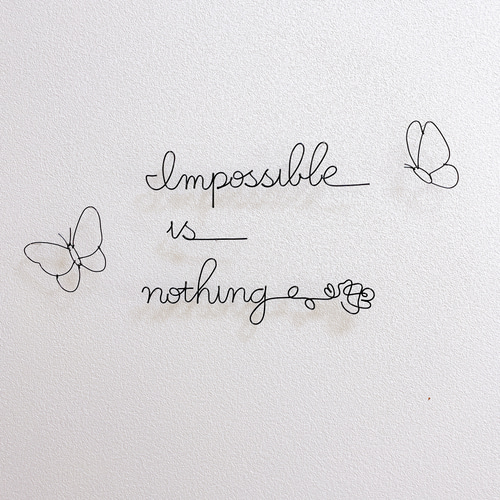 Impossible
is
nothing